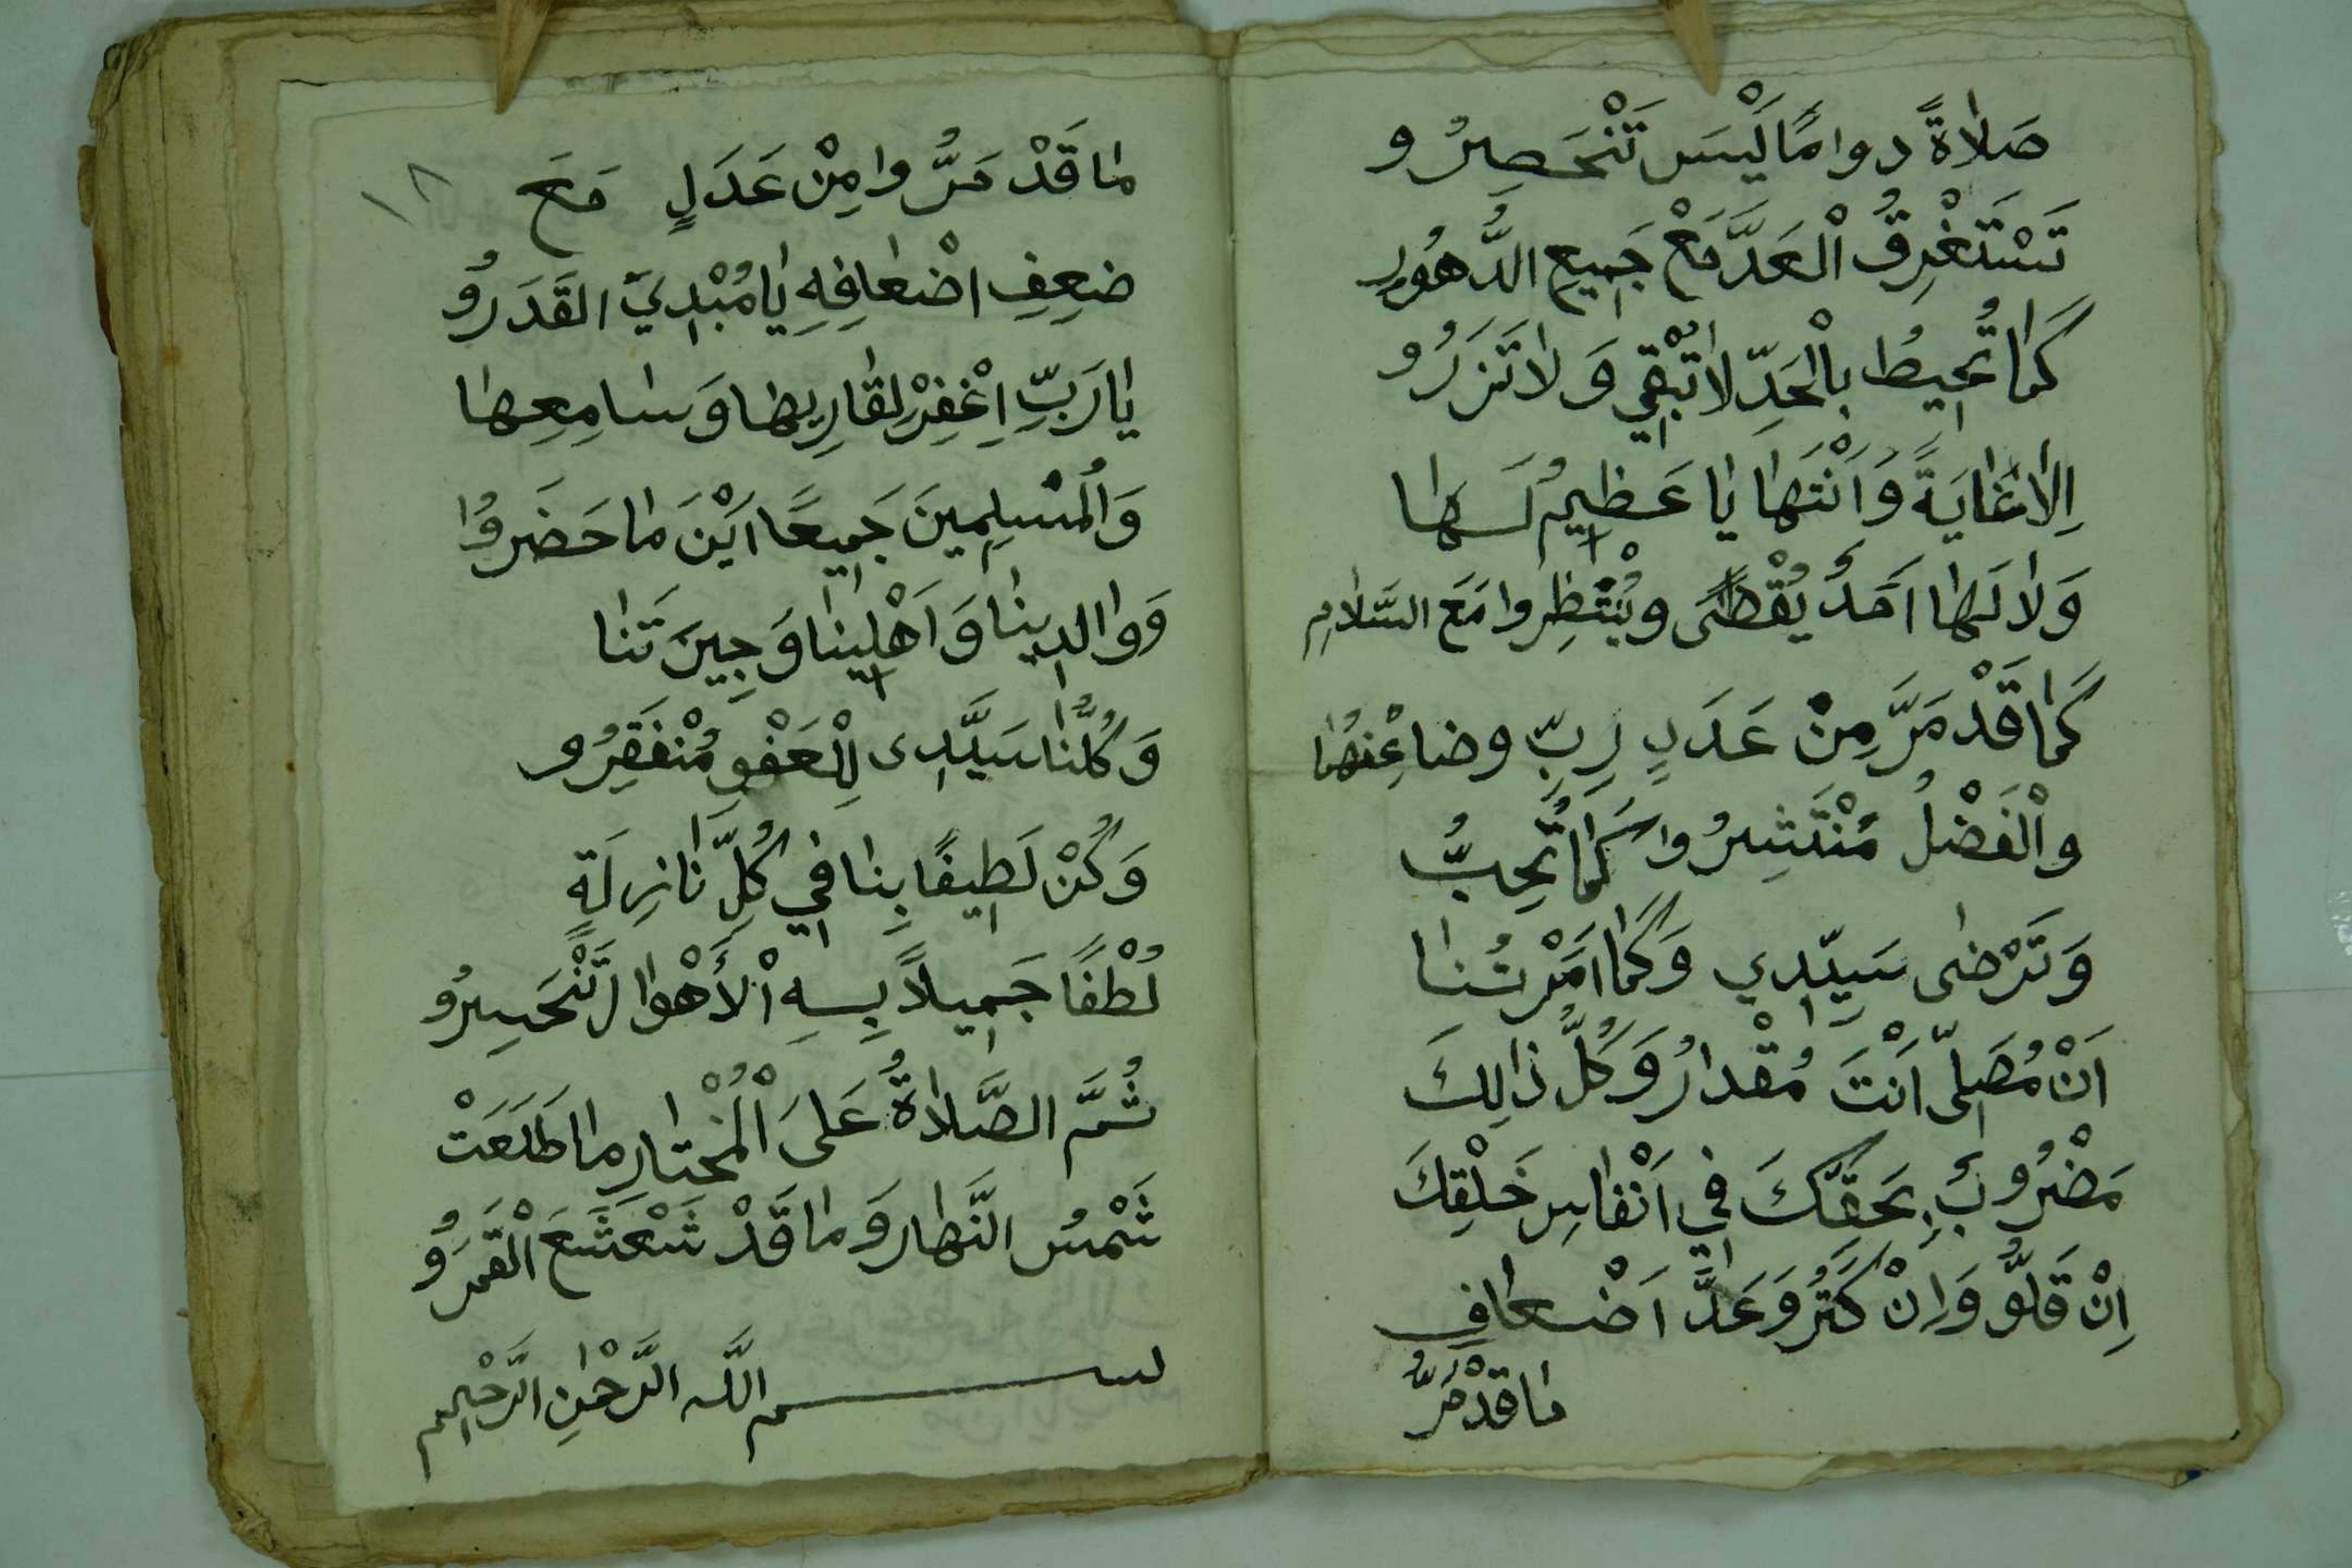 صَلٰاةً دوامًا لَيْسَ تَنْحَصِرُو
تَسْتَغْرِقُ الْعَدَّ مَعْ جَمِيعِ الدُّهُورِ
كَمٰا تُحِيطُ بِالْحَدِّ لٰا تُبْقِي وَلٰا تَزَرُو
اِلٰا غٰايَةً وَاَنْتَهٰا يٰا عَظِيمُ لَهٰا
وَلٰا لَهٰا اَحَدٌ يُقْطٰى وَيُنْتَظِروا مَعَ السَّلٰامِ
كَمٰا قَدْ مَرَّ مِنْ عَدَدٍ رَبِّ وضاعِفهٰا
والْفَضْلُ مُنْتَشِرُوا كَمٰا تُحِبُّ
وَتَرْضٰى سَيِّدِي وَكَمٰا اَمَرْتُنٰا
اَنْ مُصَلِّى اَنْتَ مُقْدارُ وَكُلُّ ذٰالِكَ
مَضْرُوبٌ بِحَقِّكَ فِي اَنْفٰاسِ خَلْقِكَ
اِنْ قَلُّو وَاِنْ كَثَرُو وَعَدَّ اَضْعٰافِ
مٰا قَدْ مَرُّ
١٨
مٰا قَدْ مَرُّوا مِنْ عَدَلٍ مَعَ
ضِعِفِ اضْعٰافِهِ يٰا مُبْدِيَ القَدَرُو
يٰا رَبِّ اِغْفِرْ لِقٰارِيهٰا وَسٰامِعِهٰا
وَالْمُسْلِمِينَ جَمِيعًا اَيْنَ مٰا حَضَرُوا
وَوالِدِينٰا وَاَهْلِينٰا وَجِيرَتَنٰا
وَكُلُّنٰا سَيَّدِى لِلْعَفْوِ مُنْفَقِرُو
وَكُنْ لَطِيفًا بِنٰا فِي كُلِّ نٰازِلَةٍ
لُطْفًا جَمِيلًا بِهِ الْأَهْوٰالُ تَنْحَسِرُو
ثُمَّ الصَّلٰاةُ عَلَى الْمُخْتٰارِ مٰا طَلَعَتْ
شَمْسُ النَّهٰارِ وَمٰا قَدْ شَعْشَعَ الْقَمَرُو
بسم اللَّه الرَّحْمٰنِ الرَّحِيمِ